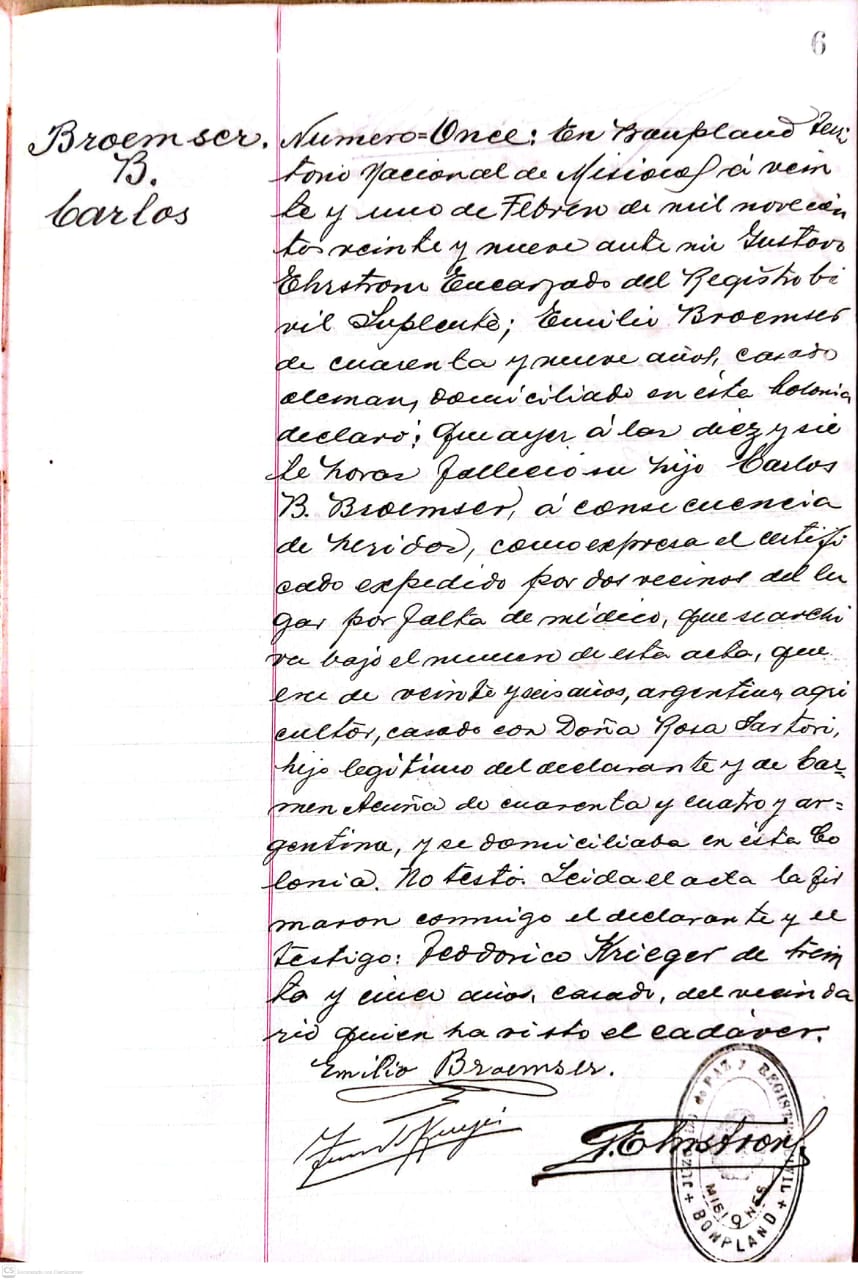 6
Broemser.
B.
Carlos
Numero=Once: En Bonpland Terri
torio Nacional de Misiones á vein
te y uno de Febrero de mil novecien
tos veinte y nueve ante mi Gustavo
Ehrstrom Encargado del Registro Ci
vil Suplente; Emilio Broemser
de cuarenta y nueve años, casado
aleman, domiciliado en ésta Colonia
declaró: Que ayer á las diez y sie
te horas falleció su hijo Carlos
B. Broemser, á consecuencia
de heridas, como expresa el certifi
cado expedido por dos vecinos del lu
gar por falta de médico, que se archi
va bajo el numero de esta acta, que
era de veinte y seis años, argentino, agri
cultor, casado con Doña Rosa Sartori,
hijo legitimo del declarante y de Car-
men Acuña de cuarenta y cuatro y ar=
gentina, y se domiciliaba en ésta Co
lonia. No testó. Leida el acta la fir
maron conmigo el declarante y el
testigo: Teodorico Krieger de trein
ta y cinco años, casado, del vecinda
rio quien ha visto el cadáver.
Emilio Broemser.
G. Ehrstrom
JUZGADO de PAZ y REGISTRO CIVIL
MISIONES
9
+ BONPLAND +
CS Escaneado con CamScanner